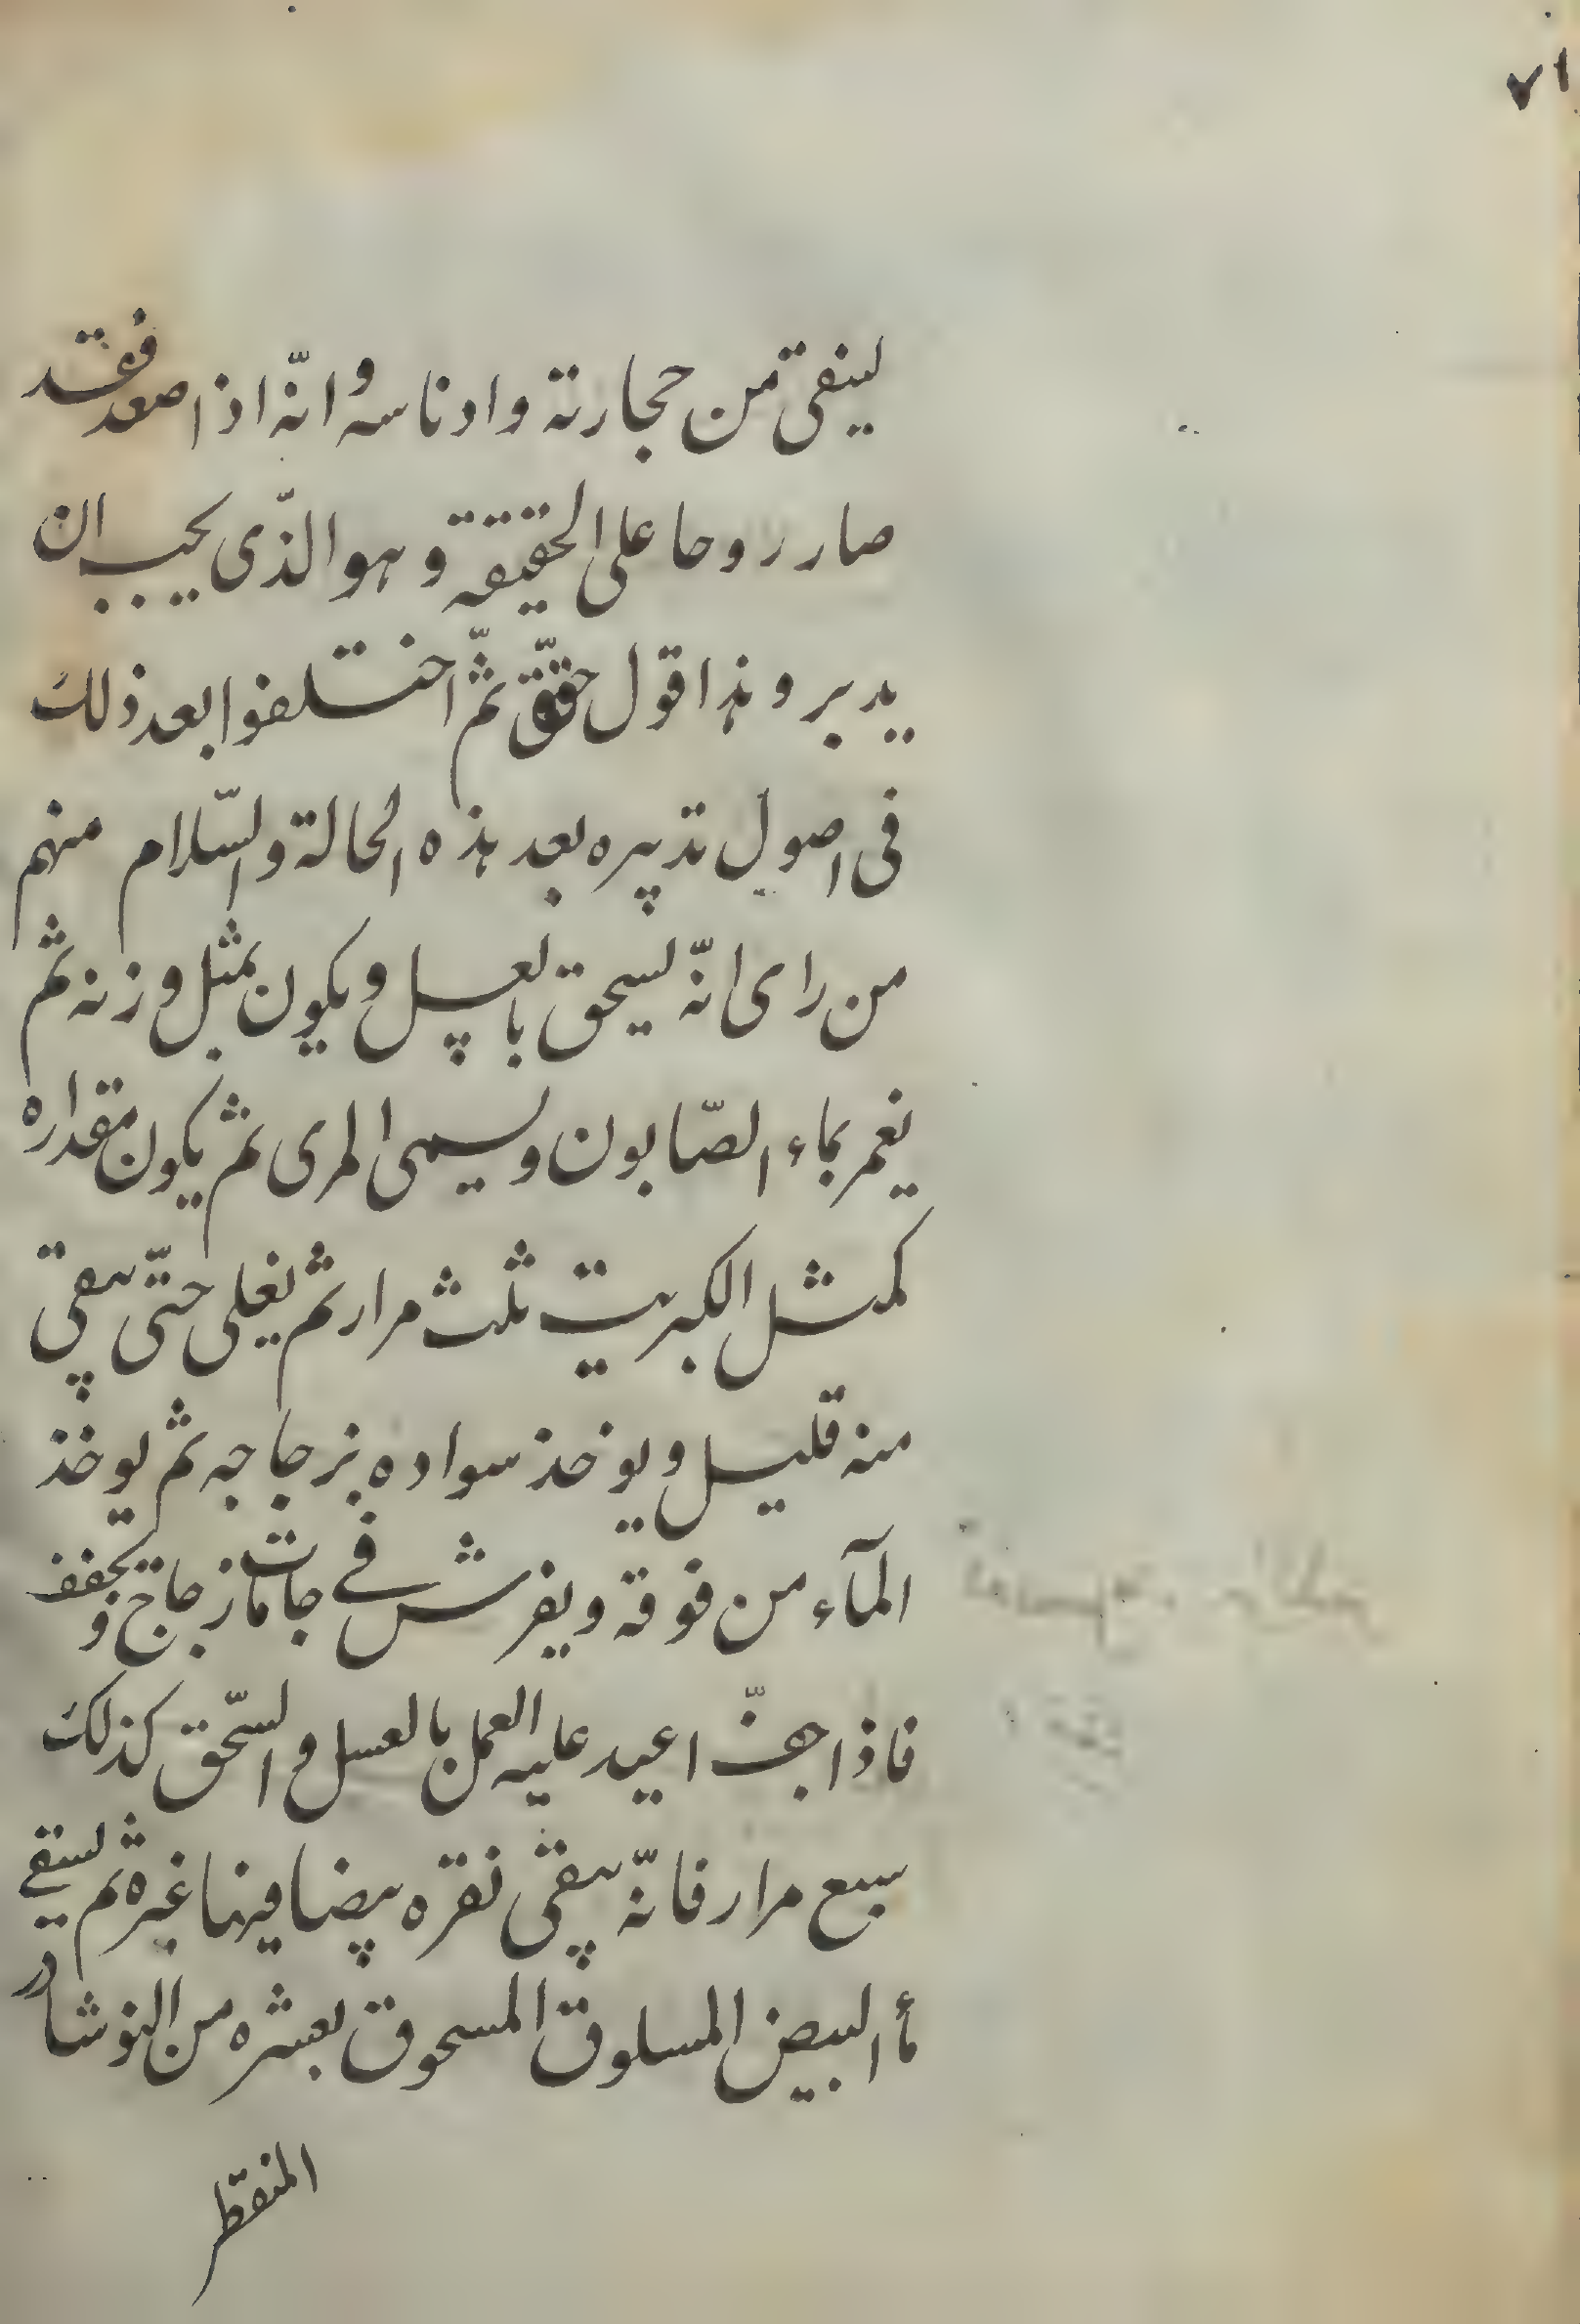 ٧١
لينقى من حجارته وادناسه وانّه اذا صعد فقد
صار روحا على الحقيقة وهو الذّى يجب ان
يدبر وهذا قول حقّ ثمّ اختلفوا بعد ذلك
فى اصول تدبيره بعد هذه الحالة والسّلام منهم
من راى انّه يسحق بالعسل ويكون بمثل وزنه ثم
يغمر بماء الصّابون ويسمى المرى ثم يكون مقداره
كمثل الكبريت ثلث مرار ثم يغلى حتّى يبقى
منه قليل ويوخذ سواده بزجاجه ثم يوخذ
المآء من فوقه ويفرش فى جامات زجاج ويجفف
فاذا جفّ اعيد عليه العمل بالعسل والسّحق كذلك
سبع مرار فانّه يبقى نقره بيضا فيها غبرة ثم يسقى
مأ البيض المسلوق المسحوق بعشره من النوشادر
المنقطر